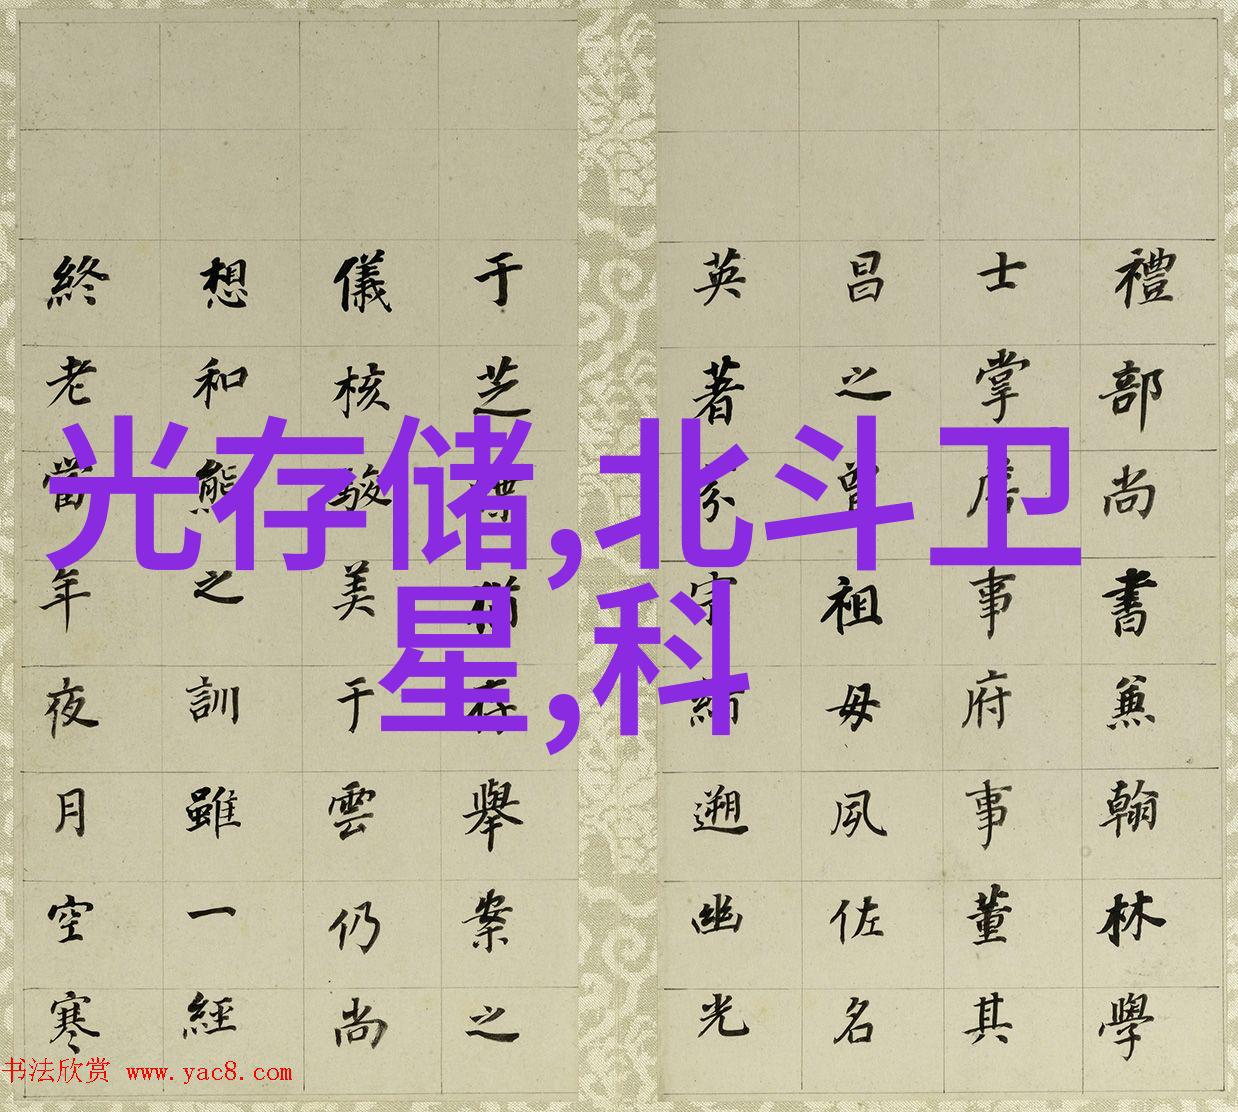 光存储,北斗卫
星,科
禮部尚書兼翰林學
士掌詹事府事董其
昌之曾祖母夙佐名
英著芬宗紡遡幽光
于芝
舉案之
儀核駿美于雲仍尚
想和熊之訓雖一經
終老當年夜月空寒
书法欣赏 www.yac8.com